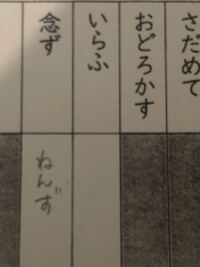 さだめて
おどろかす
いらふ
念ず
ねんず